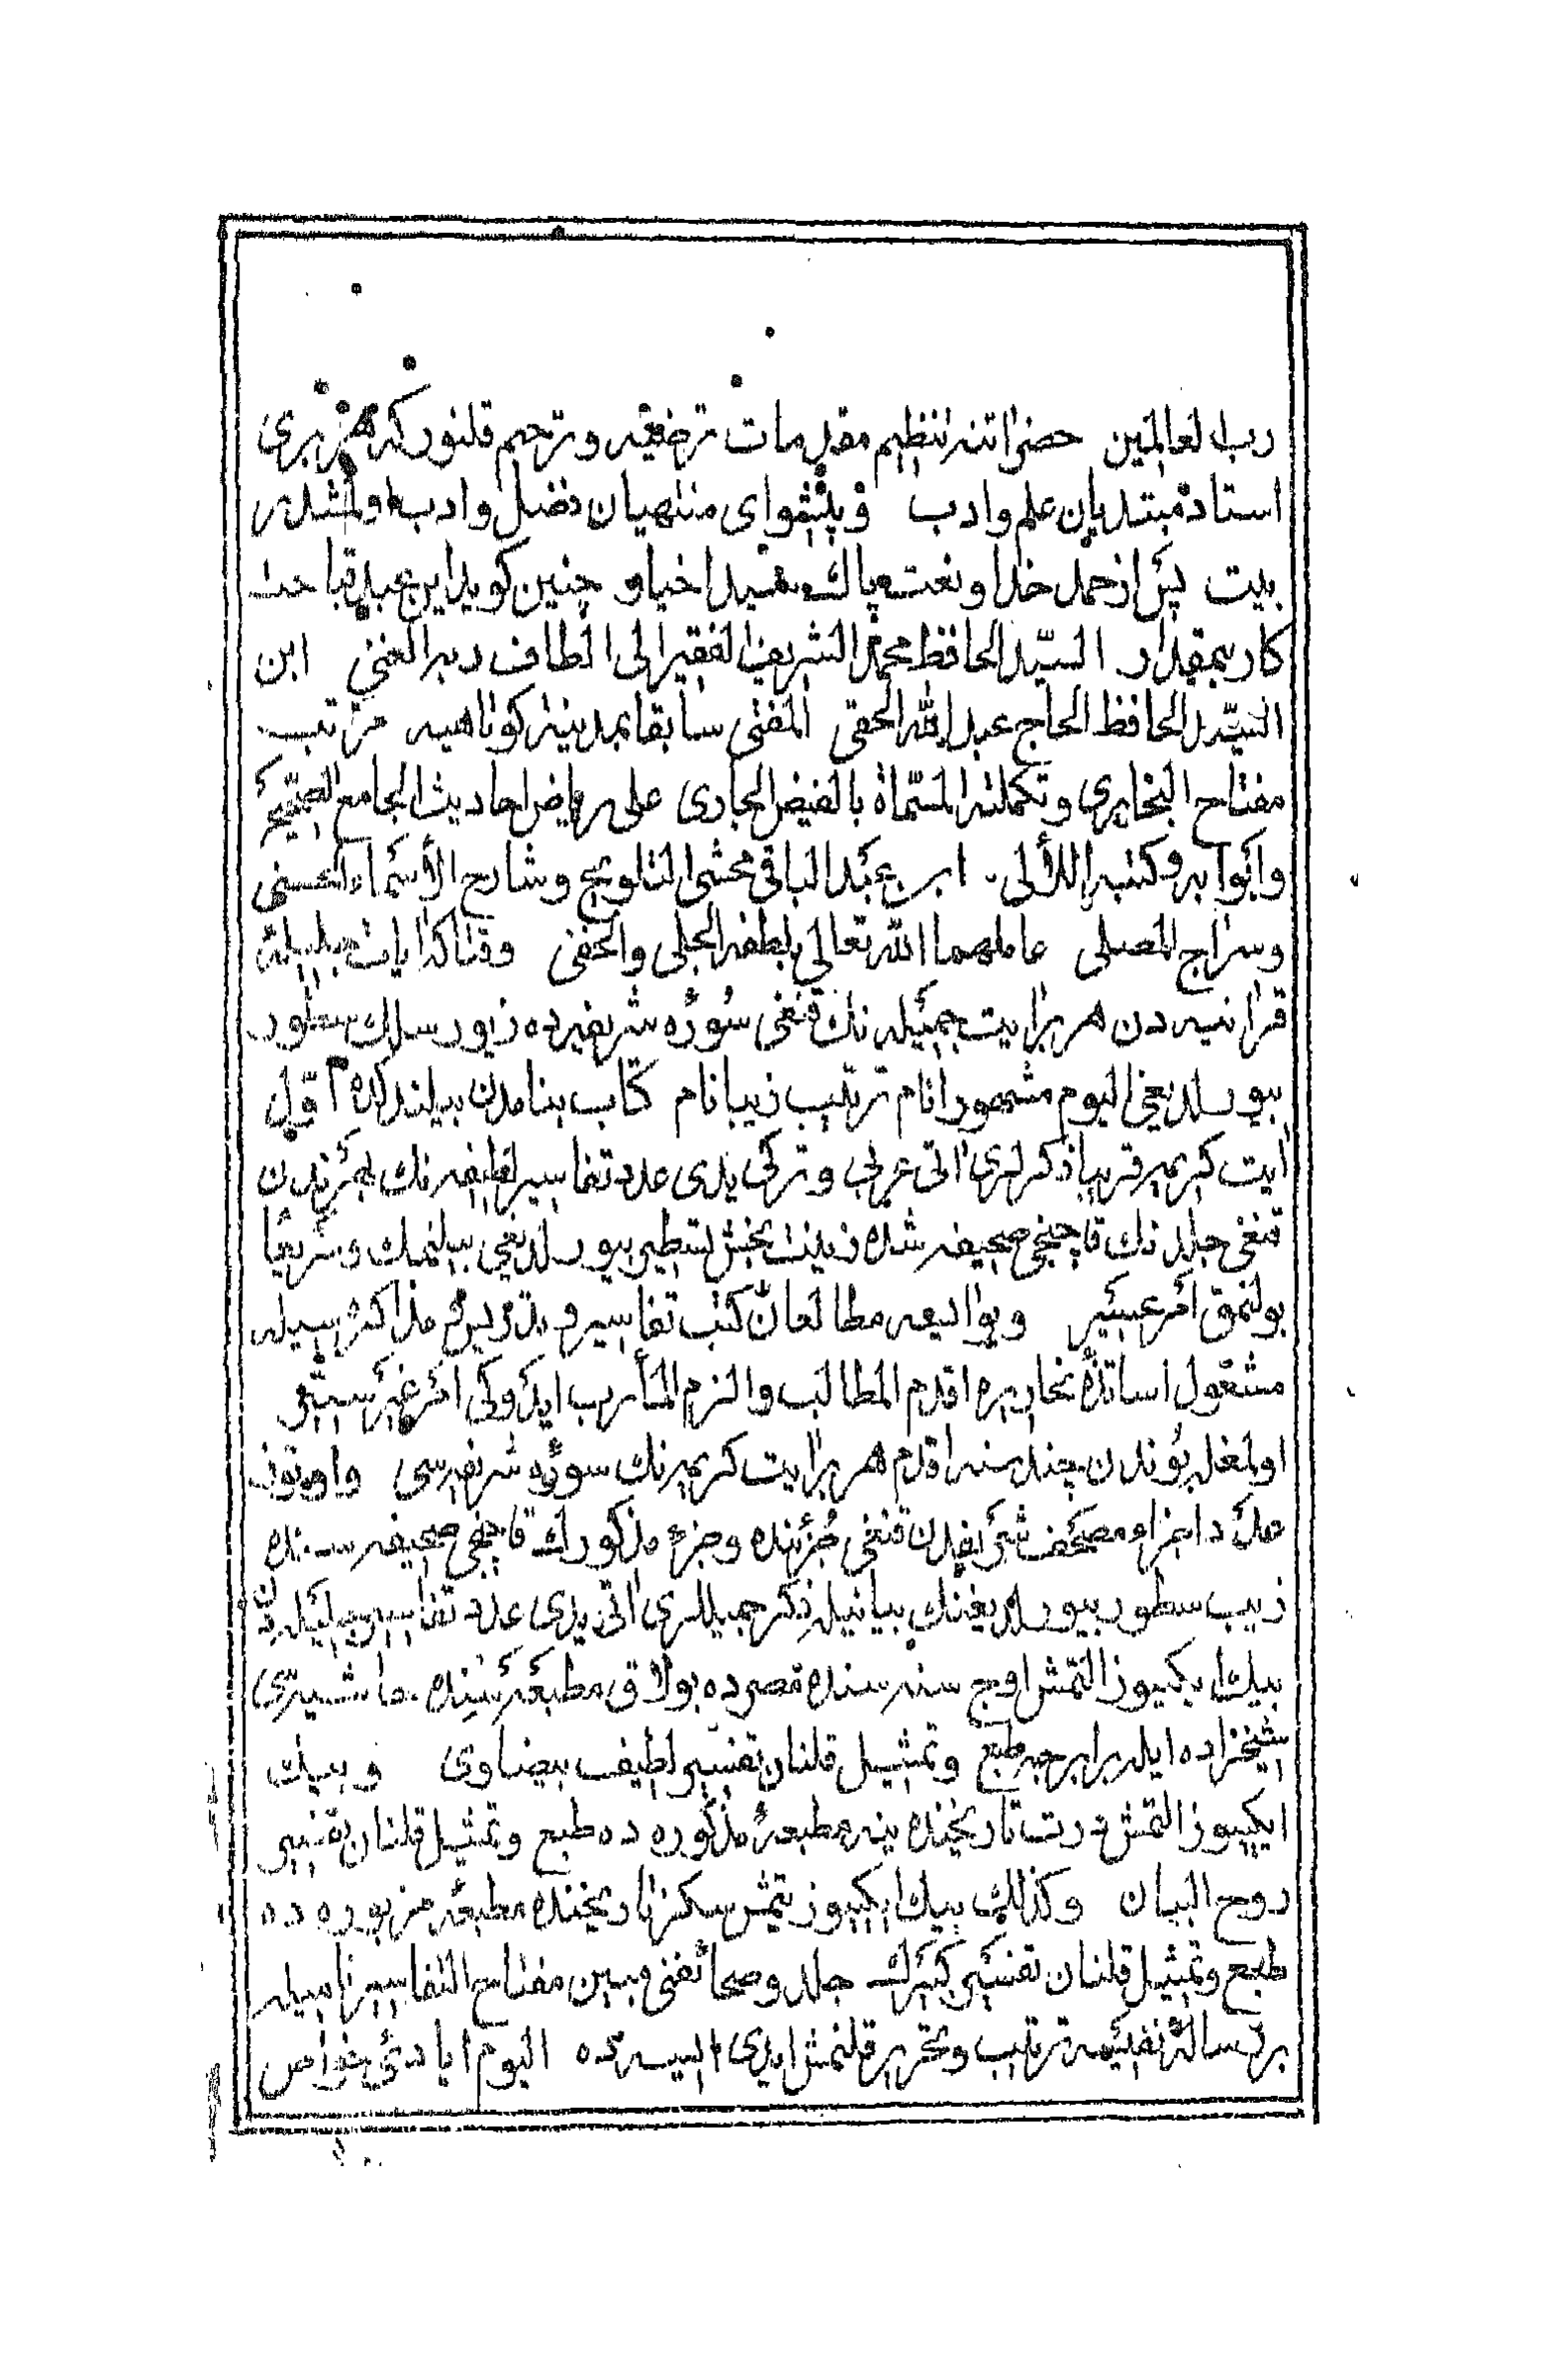 رب العالمين حضراتنه تنظيم مقدمات ترضيه و ترحيم قلنور كه هر بری
استاد مبتديان علم وادب و پيشوای منتهيان فضل وادب اولمشلدر
بيت پس از حمد خدا ونعت پاك سيد اخيار چنين كويد اين عبد قباحت
كار بيمقدار السيد الحافظ محمد الشريف الفقير الى الطاف ربه الغنی ابن
السيد الحافظ الحاج عبد الله الحقی المفتی سابقا بمدينة كوتاهيه مرتب
مفتاح البخاری وتكملته المسماة بالفيض الجاری علی رياض احاديث الجامع الصحيح
وابوابه وكتبه اللألی ابن عبد الباقی محشی التلويح وشارح الأسماء الحسنی
وسراج المصلی عاملهما الله تعالی بلطفه الجلی والخفی وقتاكه ايات جليلهٔ
قرانيه دن هر بر ايت جميله نك قنغی سورهٔ شريفه ده زيور سلك سطور
بيورلديغی اليوم مشهور انام ترتيب زيبا نام كتاب بنامدن بيلندكده اول
ايت كريمه قريبا ذكرلری اتی عربی وتركی يدی عدد تفاسير لطيفه نك بهرندن
قنغی جلدنك قاچنجی صحيفه سنده زينت بخش تسطير بيورلديغی بيلنمك وسريعا
بولنمق امر عسير وبو اليعه مطالعات كتب تفاسير و تدريس و مذاكره سيله
مشغول اساتذهٔ نحاريره اقدم المطالب والزم المآرب ايدوكی امر غير ستير
اولمغله بوندن چند سنه اقدم هر بر ايت كريمه نك سورهٔ شريفه سی واوتوز
عدد اجزاء مصحف شريفدن قنغی جزئنده وجزء مذكورك قاچنجی صحيفه سنده
زيب سطور بيورلديغنك بيانيله ذكر جميللری اتی يدی عدد تفاسير جليله دن
بيك ايكيوز التمش اوچ سنه سنده مصرده بولاق مطبعه سنده حاشيه سی
شيخزاده ايله برابرجه طبع وتمثيل قلنان تفسير لطيف بيضاوی وبيك
ايكيوز التمش درت تاريخنده ينه مطبعهٔ مذكوره ده طبع وتمثيل قلنان تفسير
روح البيان وكذلك بيك ايكيوز يتمش سكز تاريخنده مطبعهٔ مزبوره ده
طبع وتمثيل قلنان تفسير كبيرك جلد وصحائفنی مبين مفتاح التفاسير ناميله
بر رسالهٔ نفيسه ترتيب وتحرير قلنمش ايدی ايسه ده اليوم ايادی خواص